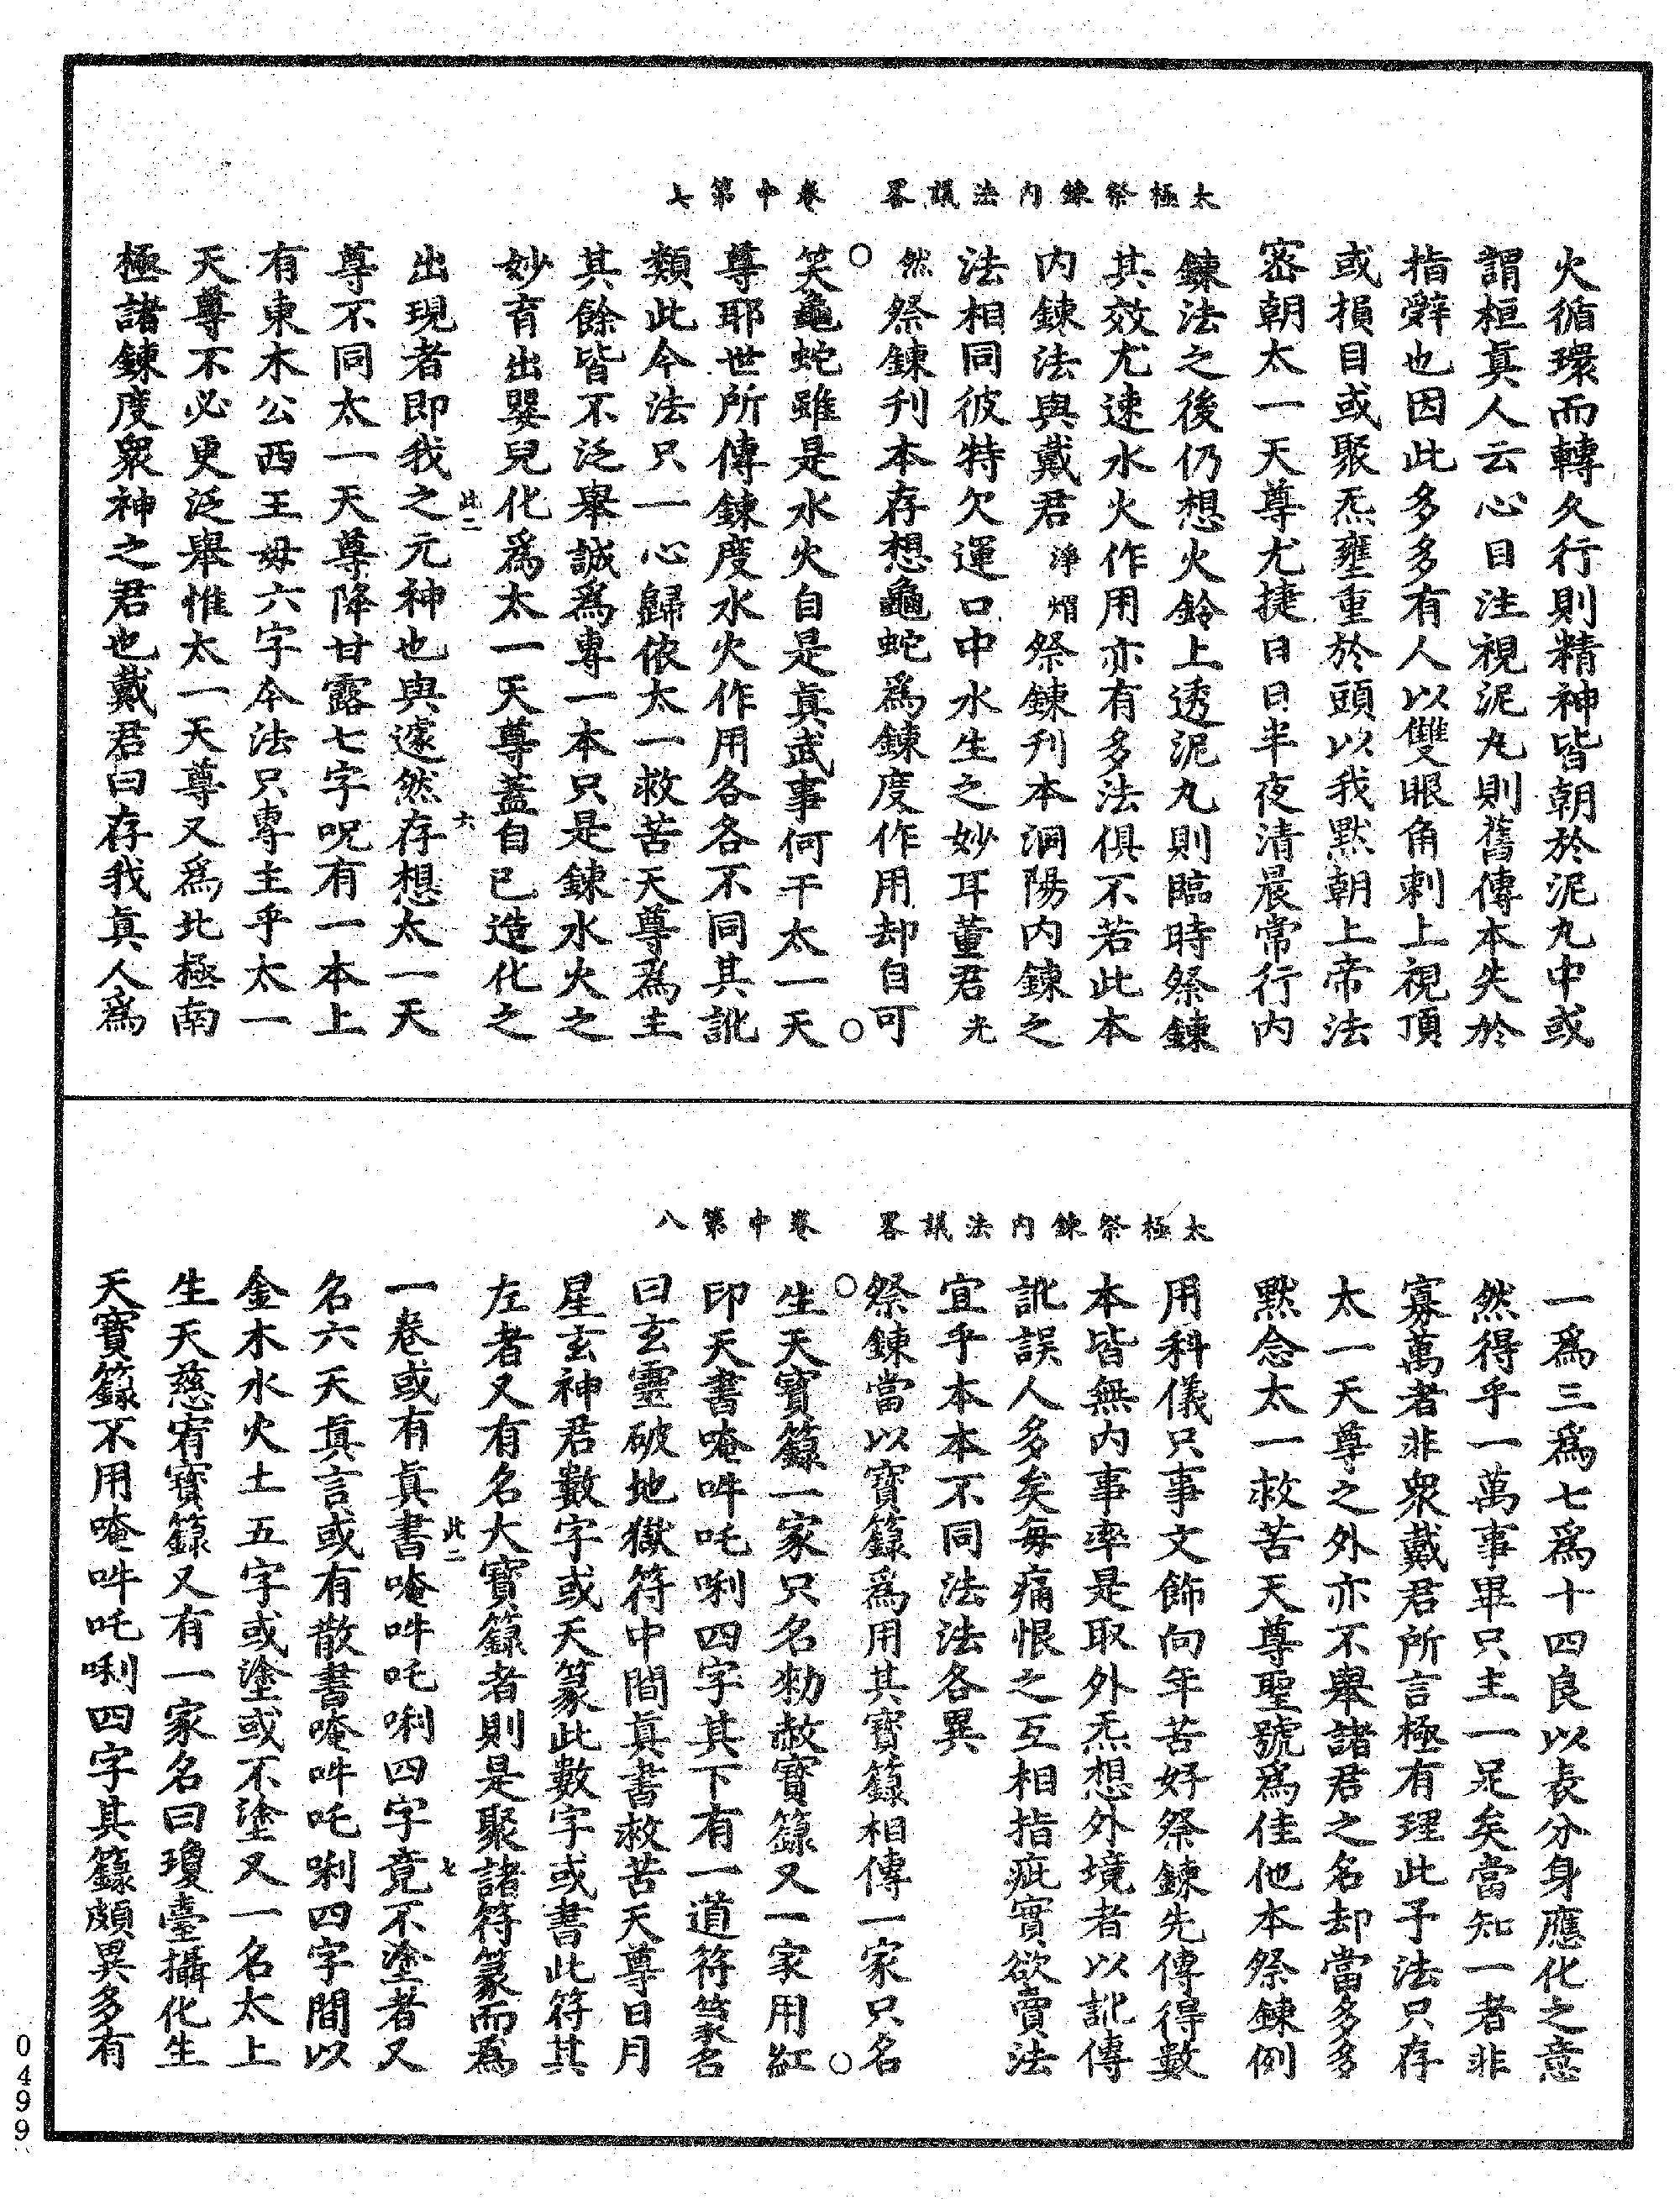 太極祭鍊內法議畧　卷中第七
火循環而轉久行則精神皆朝於泥丸中或
謂桓真人云心目注視泥丸則舊傳本失於
指辭也因此多多有人以雙眼角刺上視頂
或損目或聚炁壅重於頭以我默朝上帝法
密朝太一天尊尤捷日日半夜清晨常行內
鍊法之後仍想火鈴上透泥丸則臨時祭鍊
其效尤速水火作用亦有多法俱不若此本
內鍊法與戴君淨熠祭鍊刊本洞陽內鍊之
法相同彼特欠運口中水生之妙耳董君光
然祭鍊刊本存想龜蛇爲鍊度作用却自可
笑龜蛇雖是水火自是真武事何干太一天
尊耶世所傳鍊度水火作用各各不同其訛
類此今法只一心歸依太一救苦天尊爲主
其餘皆不泛舉誠爲專一本只是鍊水火之
妙育出嬰兒化爲太一天尊蓋自己造化之
此二　六
出現者即我之元神也與遽然存想太一天
尊不同太一天尊降甘露七字呪有一本上
有東木公西王母六字今法只專主乎太一
天尊不必更泛舉惟太一天尊又爲北極南
極諸鍊度衆神之君也戴君曰存我真人爲
太極祭鍊內法議畧　卷中第八
一爲三爲七爲十四良以表分身應化之意
然得乎一萬事畢只主一足矣當知一者非
寡萬者非衆戴君所言極有理此予法只存
太一天尊之外亦不舉諸君之名却當多多
默念太一救苦天尊聖號爲佳他本祭鍊例
用科儀只事文飾向年苦好祭鍊先傳得數
本皆無內事率是取外炁想外境者以訛傳
訛誤人多矣每痛恨之互相指疵實欲賣法
宜乎本本不同法法各異
祭鍊當以寶籙爲用其寶籙相傳一家只名
生天寶籙一家只名勑赦寶籙又一家用缸
印天書唵吽吒唎四字其下有一道符篆名
曰玄靈破地獄符中間真書救苦天尊日月
星玄神君數字或天篆此數字或書此符其
左者又有名大寶籙者則是聚諸符篆而爲
此二　七
一卷或有真書唵吽吒唎四字竟不塗者又
名六天真言或有散書唵吽吒唎四字間以
金木水火土五字或塗或不塗又一名太上
生天慈宥寶籙又有一家名曰瓊臺攝化生
天寶籙不用唵吽吒唎四字其籙頗異多有
0499